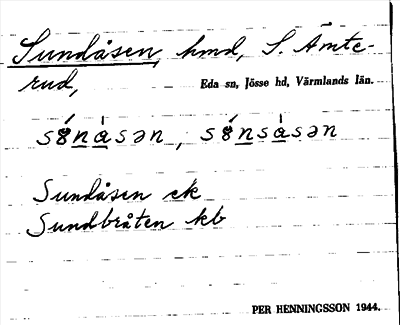 Sundåsen, hmd, S. Ämte-
rud, Eda sn, Jösse hd, Värmlands län.
Sundåsen ek
Sundbråten kb
PER HENNINGSSON 1944.